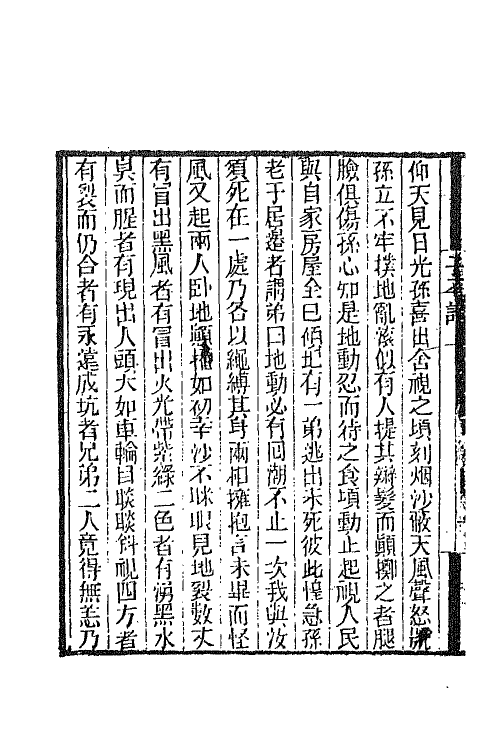 仰天見日光孫喜出舍視之頃刻烟沙蔽天風聲怒號
孫立不牢撲地亂滾似有人提其辮髮而顛擲之者腿
臉俱傷孫心知是地動忍而待之食頃動止起視人民
與自家房屋全已傾圮有一弟逃出未死彼此惶急孫
老于居邊者謂弟曰地動必有回潮不止一次我與汝
須死在一處乃各以繩縛其身兩相擁抱言未畢而怪
風又起兩人臥地顛播如初幸沙不眯眼見地裂數丈
有冒出黑風者有冒出火光帶紫綠二色者有湧黑水
臭而腥者有現出人頭大如車輪目睒睒斜視四方者
有裂而仍合者有永遠成坑者兄弟二人竟得無恙乃